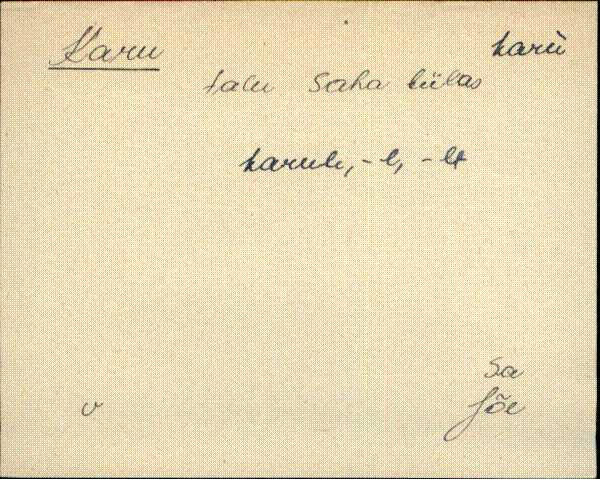 Karu karù
talu Saha külas
karule, -l, -lt
Sa
v Jõe